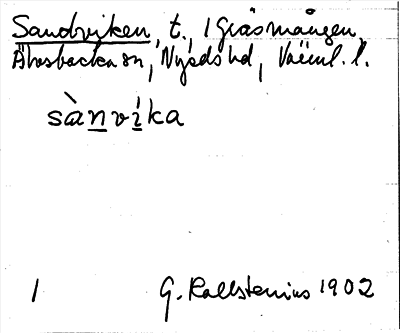 Sandviken, t., I Gräsmången,
Åhosbacka sn, Nyeds hd, Värml. l.
sànvika
1 G. Kallstenius 1902